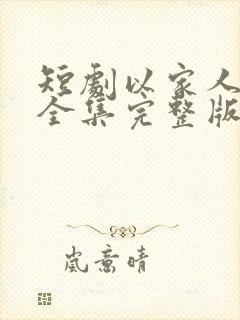 短劇以家人
全集完整版
嵐意晴